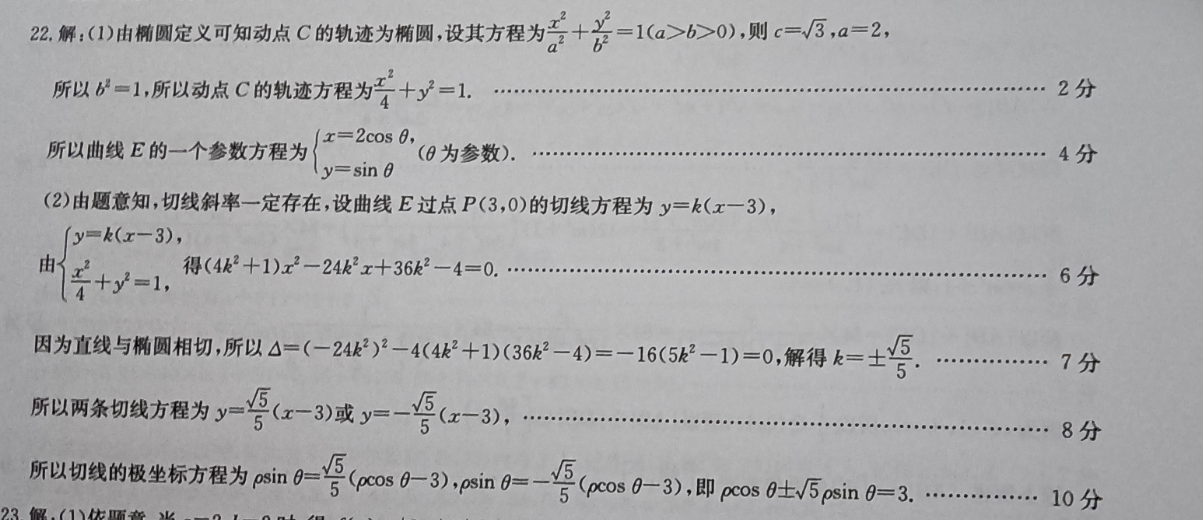 22. 解:(1)由椭圆定义可知动点 C 的轨迹为椭圆,设其方程为 x²/a² + y²/b² =1(a>b>0),则 c=√3,a=2,
所以 b²=1,所以动点 C 的轨迹方程为 x²/4 +y²=1. ………………………… 2 分
所以曲线 E 的一个参数方程为 { x=2cos θ, y=sin θ (θ 为参数). ………………………… 4 分
(2)由题意知,切线斜率一定存在,设曲线 E 过点 P(3,0)的切线方程为 y=k(x-3),
由 { y=k(x-3), x²/4 +y²=1, 得(4k²+1)x²-24k²x+36k²-4=0. ………………………… 6 分
因为直线与椭圆相切,所以 Δ=(-24k²)²-4(4k²+1)(36k²-4)=-16(5k²-1)=0,解得 k=±√5/5. ………… 7 分
所以两条切线方程为 y=√5/5(x-3)或 y=-√5/5(x-3), ………………………… 8 分
所以切线的极坐标方程为 ρsin θ=√5/5(ρcos θ-3),ρsin θ=-√5/5(ρcos θ-3),即 ρcos θ±√5ρsin θ=3. ………… 10 分
23. 解:(1)依题意,当